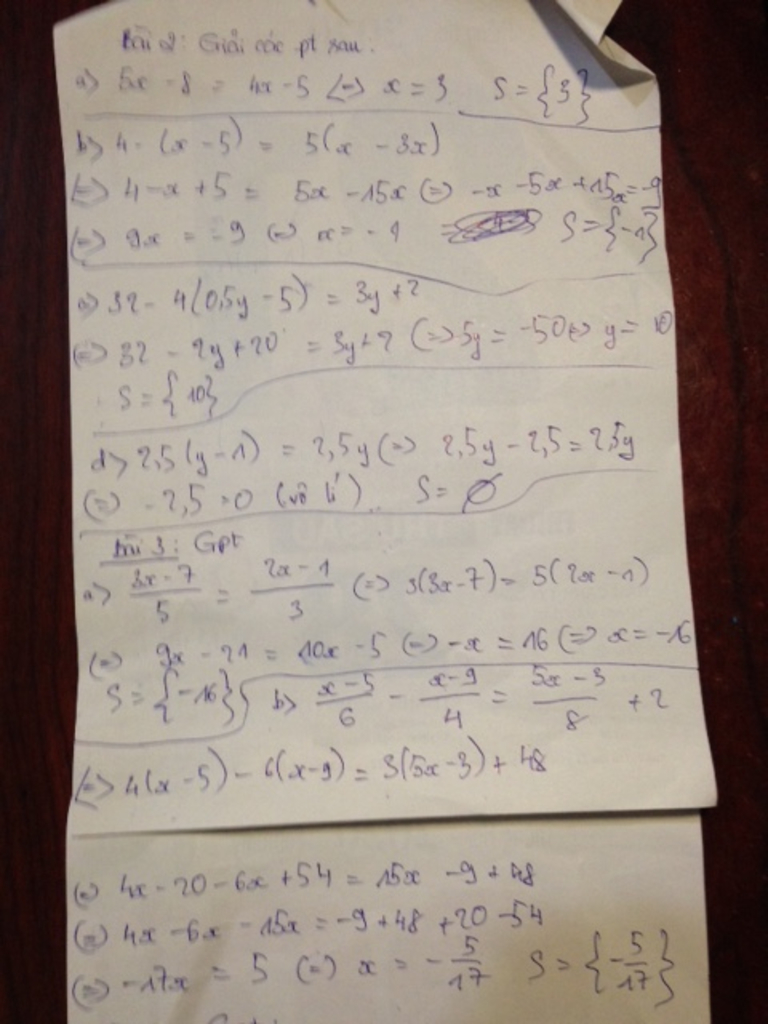 Bài 2: Giải các pt sau:
a> 5x - 8 = 4x - 5 <=> x = 3 S = {3}
b> 4 - (x - 5) = 5(x - 3x)
<=> 4 - x + 5 = 5x - 15x <=> -x - 5x + 15x = -9
<=> 9x = -9 <=> x = -1 S = {-1}
c> 32 - 4(0,5y - 5) = 3y + 2
<=> 32 - 2y + 20 = 3y + 2 <=> 5y = -50 <=> y = 10
S = {10}
d> 2,5(y - 1) = 2,5y <=> 2,5y - 2,5 = 2,5y
<=> -2,5 = 0 (vô lí). S = ∅
Bài 3: Gpt
a> \frac{3x - 7}{5} = \frac{2x - 1}{3} <=> 3(3x - 7) = 5(2x - 1)
<=> 9x - 21 = 10x - 5 <=> -x = 16 <=> x = -16
S = {-16} b> \frac{x - 5}{6} - \frac{x - 9}{4} = \frac{5x - 3}{8} + 2
<=> 4(x - 5) - 6(x - 9) = 3(5x - 3) + 48
<=> 4x - 20 - 6x + 54 = 15x - 9 + 48
<=> 4x - 6x - 15x = -9 + 48 + 20 - 54
<=> -17x = 5 <=> x = -\frac{5}{17} S = {-\frac{5}{17}}